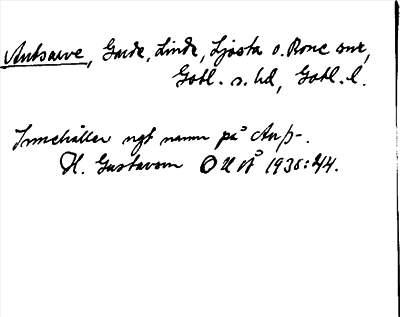 Antsarve, Garde, Linde, Ljosta o. Rone snr,
Gotl. s. hd, Gotl. l.
Innehåller ngt namn på Anp-.
H. Gustavson OUÅ 1938:44.